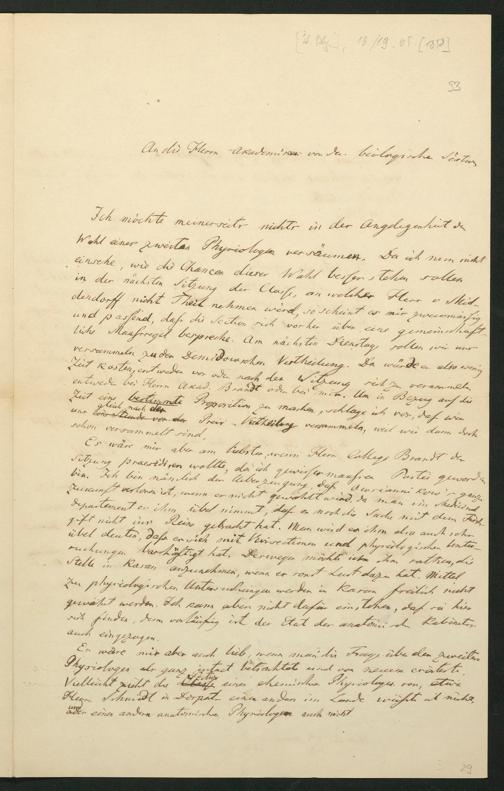 53
An die Herrn Akademiker von der biologischen Section
Ich möchte meinerseits nichts in der Angelegenheit der
Wahl einer zweiten Physiologen versäumen. Da ich nun nicht
einsehe, wie die Chancen dieser Wahl besser stehen sollen
in der nächsten Sitzung der Classe, an welcher Herr v Mid
dendorff nicht Theil nehmen werd, so scheint es mir zweckmässig
und passend, dass die Section sich vorher über eine gemeinschaft
liche Massregel bespreche. Am nächsten Dienstag sollen wir uns
versammeln zu den Demidowschen Vertheilung. Da würde es also wenig
Zeit kosten, entweder vor oder nach der Sitzung sich zu versammeln
entweder bei Herrn Akad. Brandt oder bei mir. Um in Bezug auf die
Zeit eine bestimmte Proposition zu machen, schlage ich vor, dass wir
uns gleich nach der Preis-Vertheilung versammeln, weil wir dann doch
schon versammelt sind.
Es wär mir aber am liebsten, wenn Herr College Brandt der
Sitzung praesidiren wollte, da ich gewissermassen Partei geworden
bin. Ich bin nämlich der Ueberzeugung, dass Owsiannikow's ganze
Zukunft verloren ist, wenn er nicht gewählt wird, da man im Medicinal
Departement es ihm übel nimmt, dass er noch die Sache mit dem
nicht ins Reine gebracht hat. Man wird es ihm also auch sehr
übel deuten, dass er sich mit Vivisectionen und physiologischen Unter-
suchungen beschäftigt hat. Deswegen möchte ich ihm rathen, die
Stelle in Kasan anzunehmen, wenn er sonst Lust dazu hat. Mittel
zu physiologischen Untersuchungen werden in Kasan freilich nicht
gewährt werden. Ich kann aber nicht dafür einstehen, dass sie hier
sich finden, denn vorläufig ist der Etat der anatomischen Kabinets
auch eingezogen.
Es wäre mir aber auch lieb, wenn man die Frage über den zweiten
Physiologen als ganz intact betrachtet und von neuem erörtert.
Vielleicht zieht die Section einen chemischen Physiologen vor, etwa
Herrn Schmidt in Dorpat einen andern im Lande wüsste ich nicht,
und einen andern anatomischen Physiologen auch nicht
29